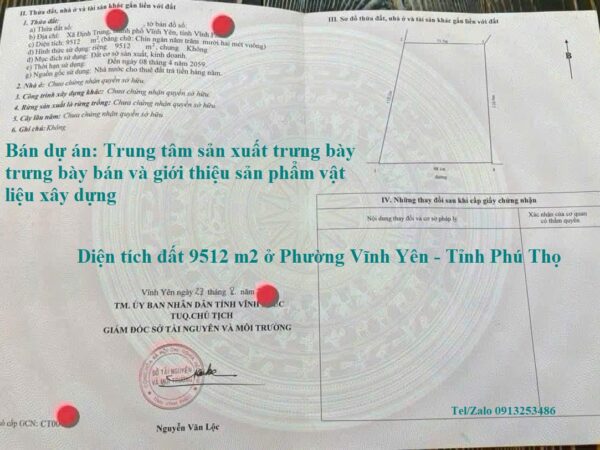 II. Thửa đất, nhà ở và tài sản khác gắn liền với đất
a) Thửa đất số: , tờ bản đồ số:
b) Địa chỉ: Xã Định Trung, thành phố Vĩnh Yên, tỉnh Vĩnh
c) Diện tích: 9512 m², (bằng chữ: Chín ngàn năm trăm mười hai mét vuông)
d) Hình thức sử dụng: riêng 9512 m², chung Không
đ) Mục đích sử dụng: Đất cơ sở sản xuất, kinh doanh.
e) Thời hạn sử dụng: Đến ngày 08 tháng 4 năm 2059.
g) Nguồn gốc sử dụng: Nhà nước cho thuê đất trả tiền hàng năm.
2. Nhà ở: Chưa chứng nhận quyền sở hữu.
3. Công trình xây dựng khác: Chưa chứng nhận quyền sở hữu.
4. Rừng sản xuất là rừng trồng: Chưa chứng nhận quyền sở hữu.
5. Cây lâu năm: Chưa chứng nhận quyền sở hữu.
6. Ghi chú: Không
III. Sơ đồ thửa đất, nhà ở và tài sản khác gắn liền với đất
B
đường
Bán dự án: Trung tâm sản xuất trưng bày
trưng bày bán và giới thiệu sản phẩm vật
liệu xây dựng
IV. Những thay đổi sau khi cấp giấy chứng nhận
Nội dung thay đổi và cơ sở pháp lý
Xác nhận của cơ quan
có thẩm quyền
Diện tích đất 9512 m2 ở Phường Vĩnh Yên - Tỉnh Phú Thọ
Vĩnh Yên ngày 27 tháng 8 năm
TM. ỦY BAN NHÂN DÂN TỈNH VĨNH PHÚC
TUQ.CHỦ TỊCH
GIÁM ĐỐC SỞ TÀI NGUYÊN VÀ MÔI TRƯỜNG
SỞ TÀI NGUYÊN
VÀ MÔI TRƯỜNG
Nguyễn Văn Lộc
số cấp GCN: CT00
Tel/Zalo 0913253486